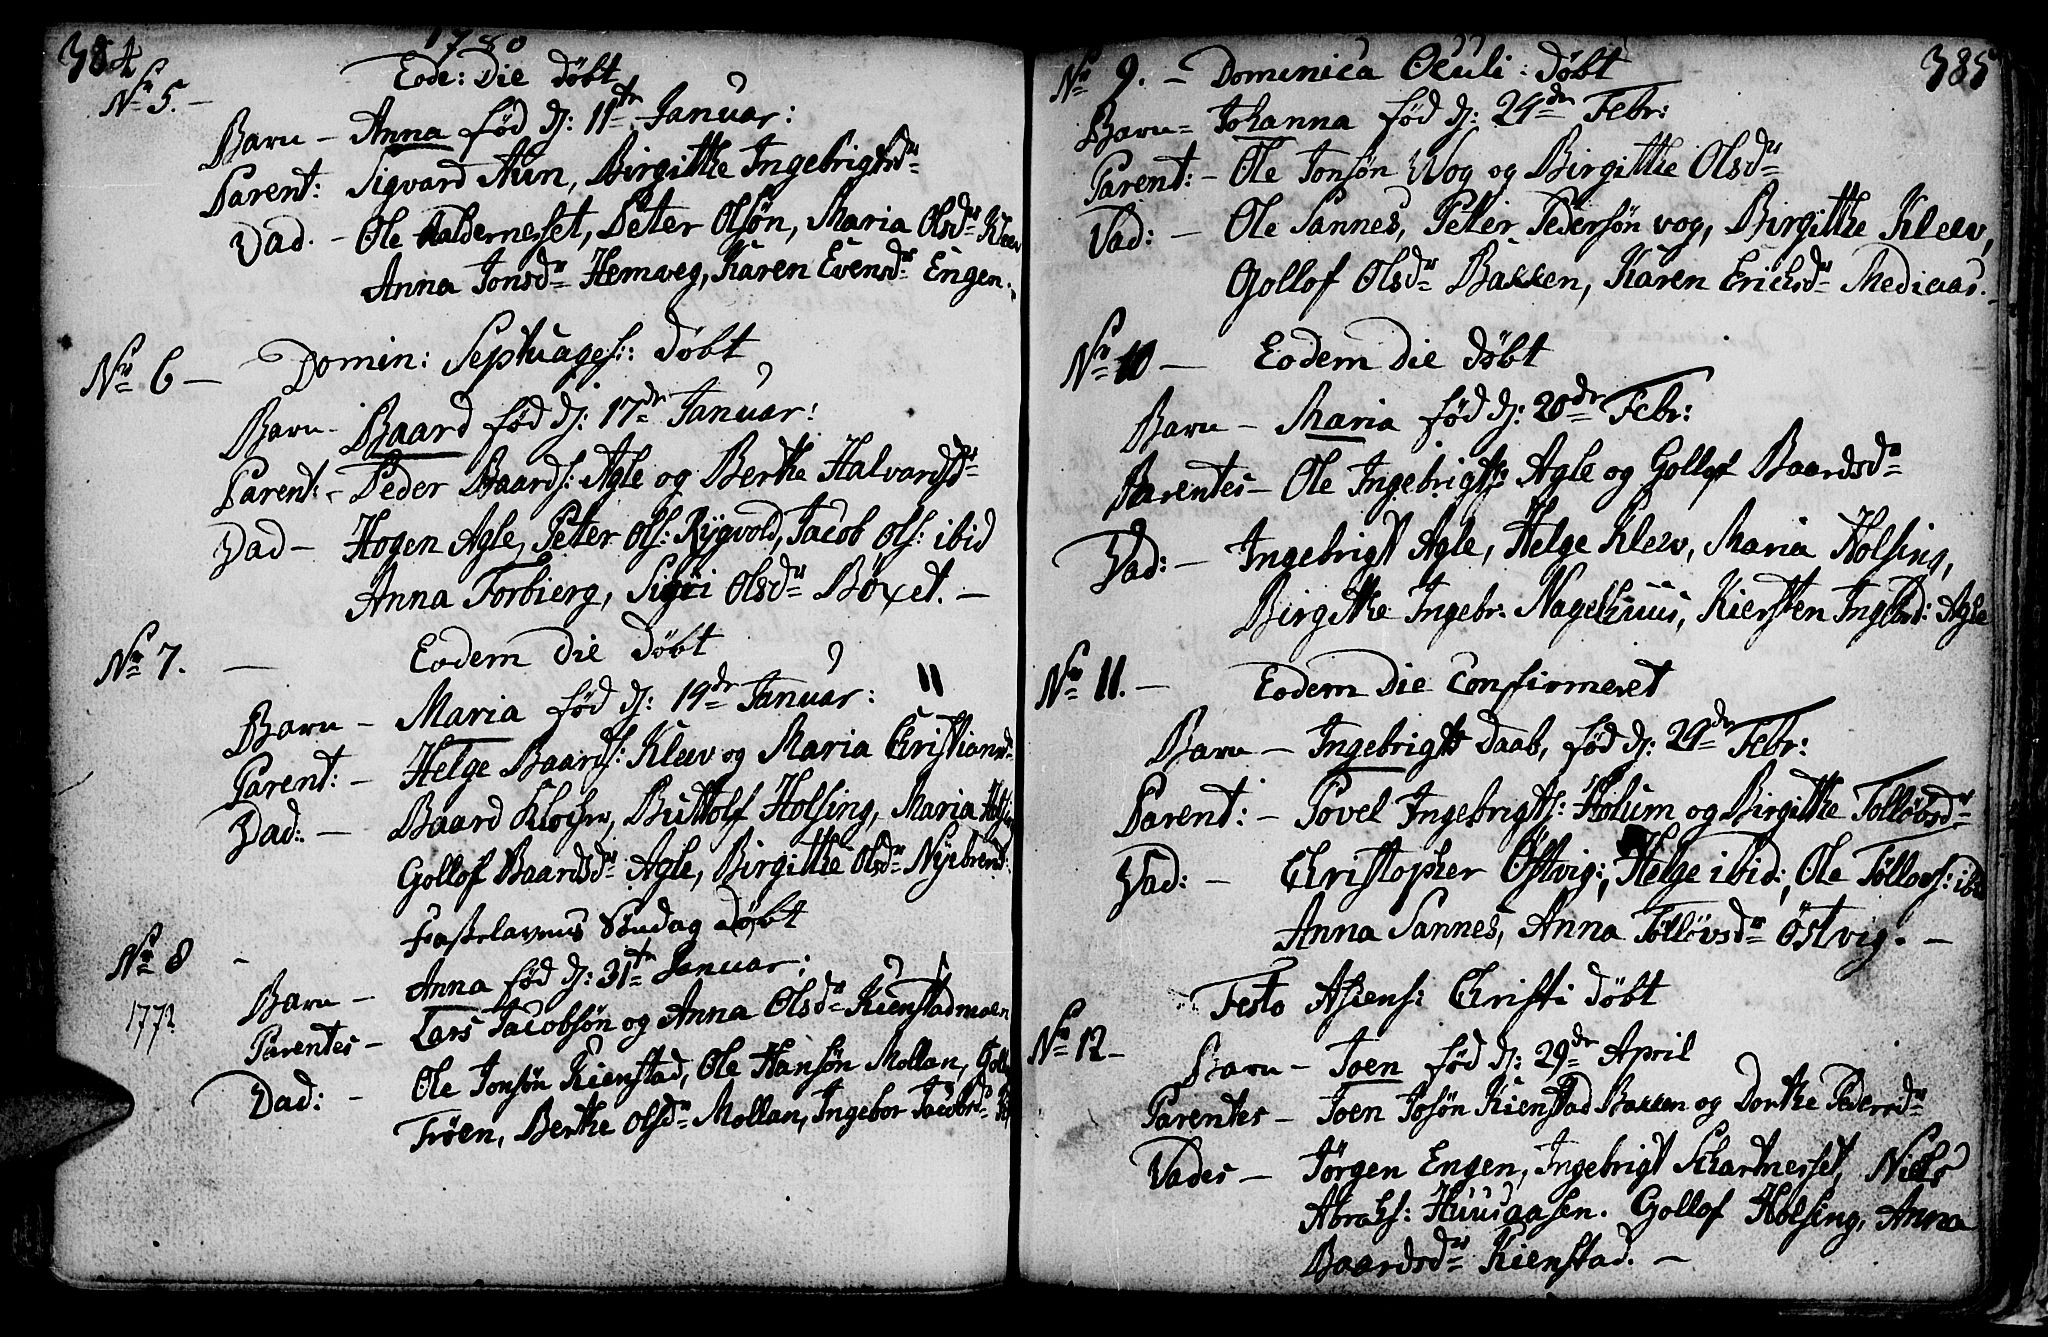 384
1780
No 5. - Eode: Die döbt
Barn - Anna föd d: 11te Januar:
Parent: Sigvard Aun, Birgitthe Ingebrigtsdr
Vad. - Ole Kaldernesset, Peter Olsön, Maria Olsdr Kleev
Anna Jonsdr Hemweg, Karen Evensdr Engen.
No 6 - Domin: Septuages: döbt
Barn - Baard föd d: 17de Januar:
Parent: - Peder Baards: Agle og Berthe Halvardsdr
Vad - Hogen Agle, Peter Ols: Rygvold, Jacob Ols: ibid
Anna Forbierg, Sigri Olsdr Böxet. -
No 7. - Eodem Die döbt
Barn - Maria föd d: 19de Januar:
Parent: - Helge Baards: Kleev og Maria Christiansd:
Vad: - Baard Klocher, Buttolf Holsing, Maria
Gollof Baardsdr Agle, Birgitthe Olsdr Nyebrend:
Fastelavens Söndag döbt
No 8 -
Barn - Anna föd d: 31te Januar:
1772
Parentes - Lars Jacobsön og Anna Olsdr Kienstadmoen
Vad: - Ole Jonsön Kienstad, Ole Hansön Mollan,
Tröen, Berthe Olsdr Mollan, Ingebor Jacobsdr
385
No 9. - Dominica Oculi: döbt
Barn - Johanna föd d: 24de Febr:
Parent: - Ole Jonsön Wog og Birgitthe Olsdr
Vad: - Ole Sannes, Peter Pedersön wog, Birgitthe Kleev,
Gollof Olsdr Bakken, Karen Erichsdr Mediaas. -
No 10 - Eodem die döbt
Barn - Maria föd d: 20de Febr:
Parentes - Ole Ingebrigts: Agle og Gollof Baardsdr
Vad: - Ingebrigt Agle, Helge Kleev, Maria Holsing,
Birgitthe Ingebr: Nagelhuus, Kiersten Ingebrd: Agle
No 11. - Eodem Die Confirmeret
Barn - Ingebrigts Daab, föd d: 29de Febr:
Parent: - Povel Ingebrigts: Holum og Birgitthe Tollövsdr
Vad: - Christopher Östvig:, Helge ibid:, Ole Töllovs: ibid
Anna Sannes, Anna Töllövsdr Östvig. -
Festo Asiens: Christi döbt
No 12 -
Barn - Joen föd d: 29de April
Parentes - Joen Josön Kienstad Bakken og Dorthe Pedersdr
Vades - Jörgen Engen, Ingebrigt Schartnesset, Niels
Abrahs: Huusaasen. Gollof Holsing, Anna
Baardsdr Kienstad. -